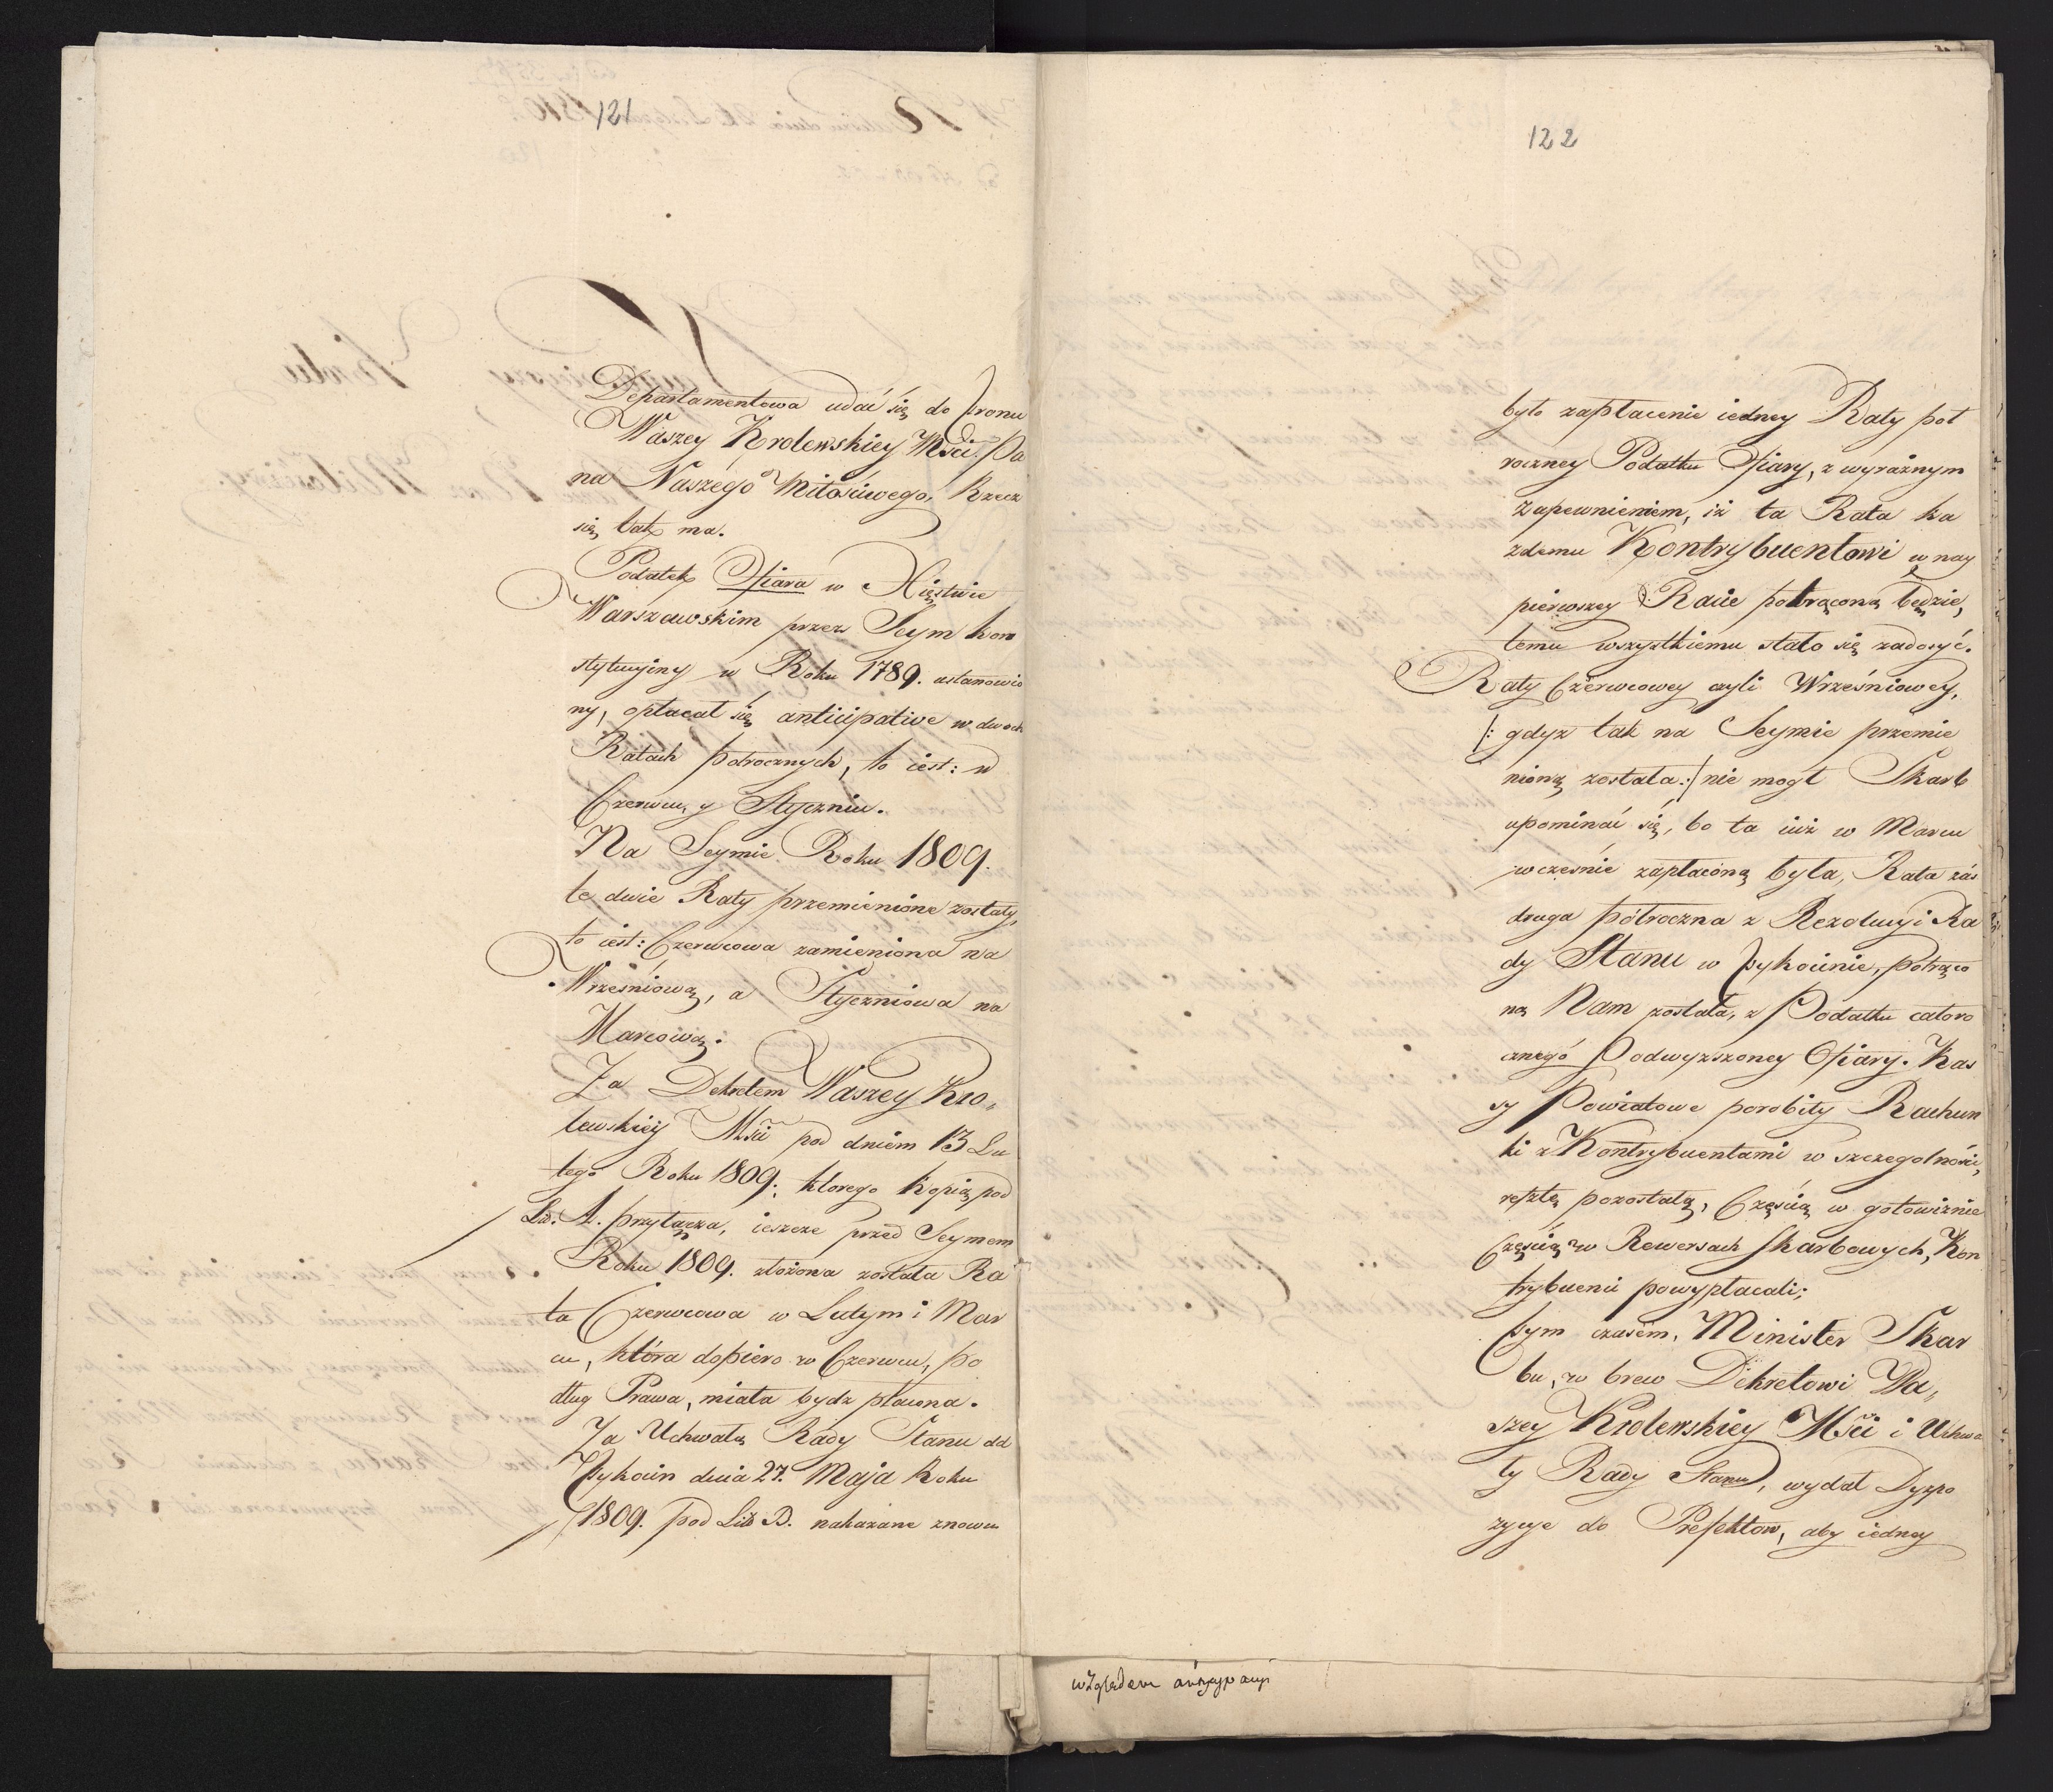 121
Departamentowa udać się do Tronu
Waszey Krolewskiey Mści. Pa
na Naszego Miłosciwego, Rzecz
się tak ma.
Podatek Ofiara w Xięstwie
Warszawskim przez Seym kon
stytucyiny w Roku 1789. ustanowio
ny, opłacał się anticipative w dwoch
Ratach połrocznych, to iest: w
Czerwcu y Styczniu.
Na Seymie Roku 1809.
te dwie Raty przemienione zostały,
to iest: Czerwcowa zamieniona na
Wrześniową, a Styczniowa na
Marcową.
Za Dekretem Waszey Kro„
lewskiey Mści pod dniem 13 Lu
tego Roku 1809; ktorego kopią pod
Lit. A. przyłącza, ieszcze przed Seymem
Roku 1809. złożona została Ra
ta Czerwcowa w Lutym i Mar
cu, która dopiero w Czerwcu, po
dług Prawa, miała bydz płacona.
Za Uchwałą Rady Stanu dd
Tykocin dnia 27. Maja Roku
1809. pod Lit B. nakazane znowu
122
było zapłacenie iedney Raty poł
roczney Podatku Ofiary, z wyraźnym
Zapewnieniem, iż ta Rata ka
żdemu Kontrybuentowi w nay
pierwszey Racie potrącona będzie,
temu wszystkiemu stało się zadosyć.
Raty Czerwcowey czyli Wrześniowey,
/: gdyż tak na Seymie przemie
nioną została :/ nie mogł Skarb
upominać się, bo ta iuż w Marcu
wcześnie zapłaconą była, Rata zás
druga półroczna z Rezolucyi Ra
dy Stanu w Tykocinie, potrąco
ną Nam została, z Podatku całoro
cznego Podwyższoney Ofiary. Kas
sy Powiatowe porobiły Rachun
ki z Kontrybuentami w szczegolności,
resztę pozostałą, Częścią w gotowiznie
Częścią w Rewersach skarbowych, Kon
trybuenci powypłacali;
Tym czasem, Minister Skar
bu, w brew Dekretowi Wa„
szey Krolewskiey Mści i Uchwa
ły Rady Stanu, wydał Dyspo
zycye do Prefektow, aby iedney
względem antycypacyi